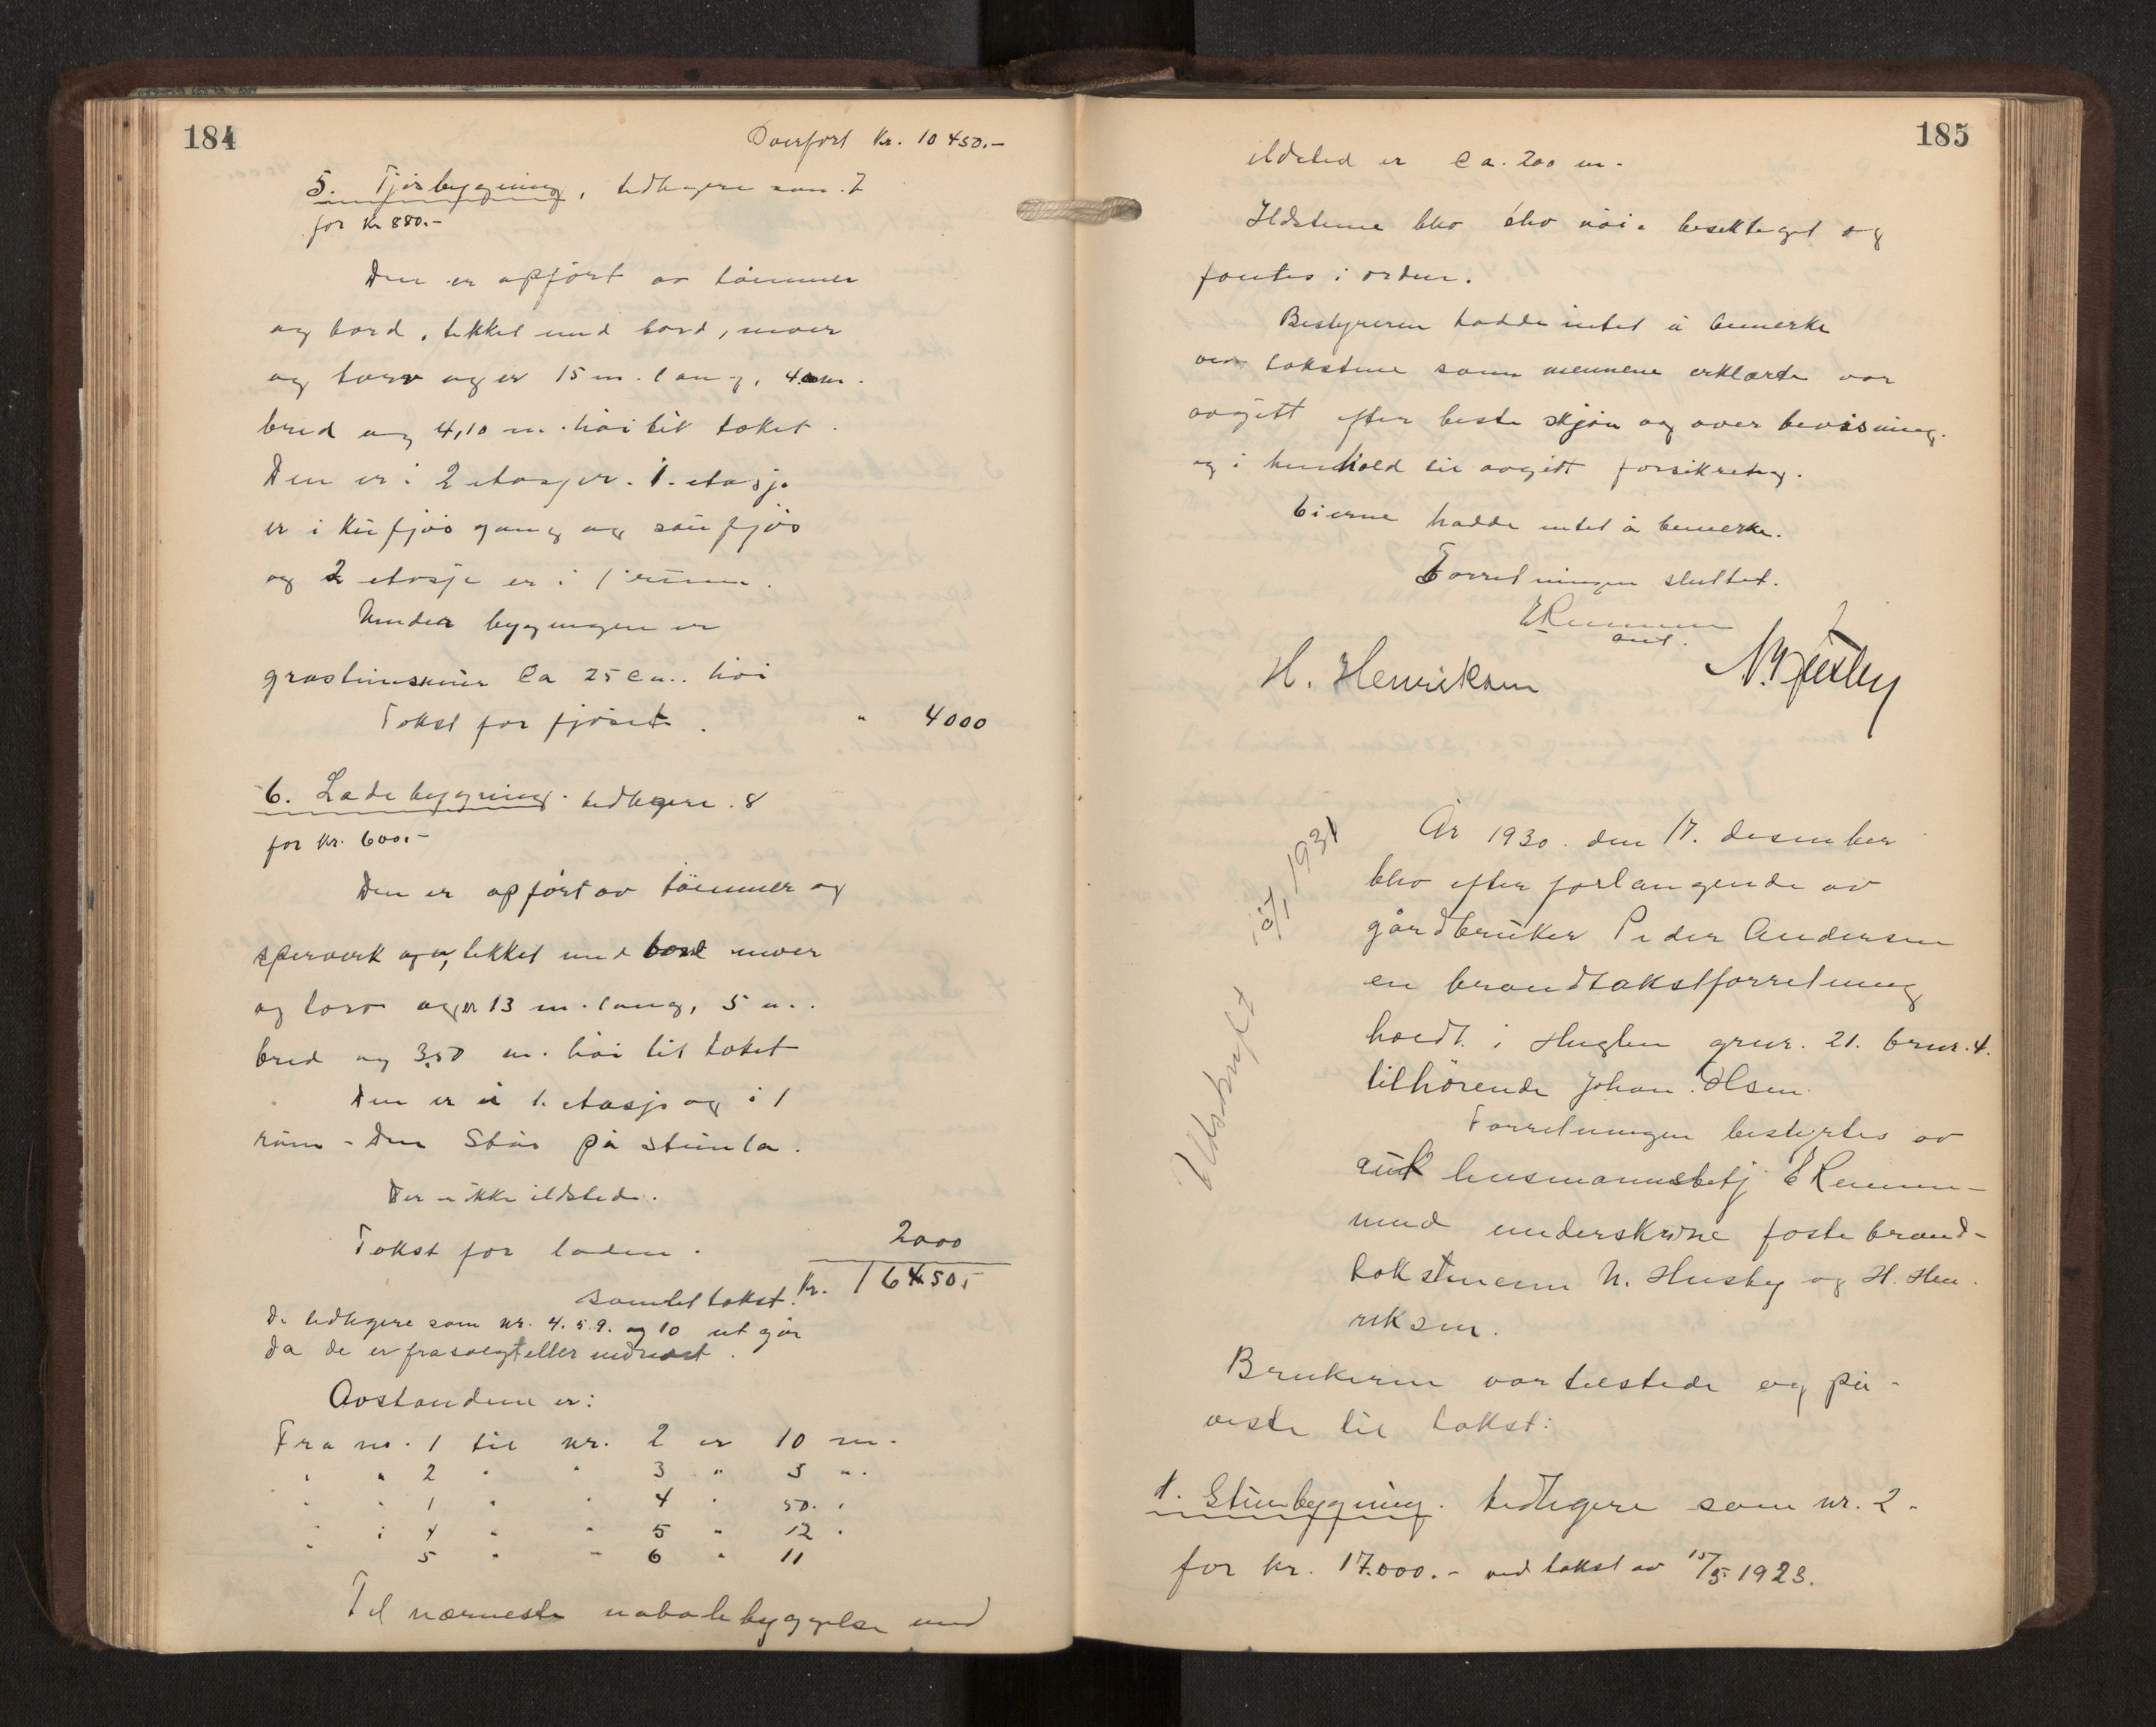 184
Overført Kr. 10 450.-
5. Fjøsbygning, tidligere som 7
for Kr 880.-
Den er opført av tømmer
og bord, tekket med bord, never
og torv og er 15 m. lang,
bred og 4,10 m. høi til taket.
Den er i 2 etasjer. 1. etasje
er i kufjøs gang og saufjøs
og 2 etasje er i 1 rum.
Under bygningen er
grastensmur Ca 25 cm. høi
Takst for fjøset. " 4000
6. Ladebygning. tidligere. 8
for Kr. 600.-
Den er opført av tømmer og
sperverk og er, tekket med bord never
og torv og er 13 m. lang, 5 m.
bred og 3.50 m. høi til taket
Den er i 1. etasje og i 1
rum - Den står på stenla.
Der er ikke ildsted.
Takst for laden. 2000
Samlet takst. Kr. 16450.-
De tidligere som nr. 4. 5. 9. og 10 utgår
da de er frasolgt eller nedrevet.
Avstandene er:
Fra nr. 1 til nr. 2 er 10 m.
" " 2 " " 3 " 3 m.
" " 1 " " 4 " 50. "
" " 4 " " 5 " 12 "
" 5 " " 6 " 11
Til nærmeste nabobebyggelse med
185
ildsted er Ca. 200 m.
Ildstedene blev besiktiget og
fantes i orden.
Bestyreren hadde intet å bemerke
ved takstene som mennene erklærte var
avgitt efter beste skjøn og overbevisning.
og i henhold til avgitt forsikring.
Eierne hadde intet å bemerke.
Forretningen sluttet.
E Remmen
aut.
H. Henriksen N. Husby
Utskrift 15/1 1931
År 1930. den 17. desember
blev efter forlangende av
gårdbruker Peder Andersen
en brandtakstforretning
holdt i Huglen gnr. 21. brnr. 4.
tilhørende Johan Olsen.
Forretningen bestyrtes av
aut lensmannsbetj E Remmen
med underskrevne faste brand-
takstmenn N. Husby og H. Hen
riksen.
Brukeren var tilstede og på-
viste til takst:
1. Stuebygning. tidligere som nr. 2.
for kr. 17.000.- ved takst av 15/5 1923.